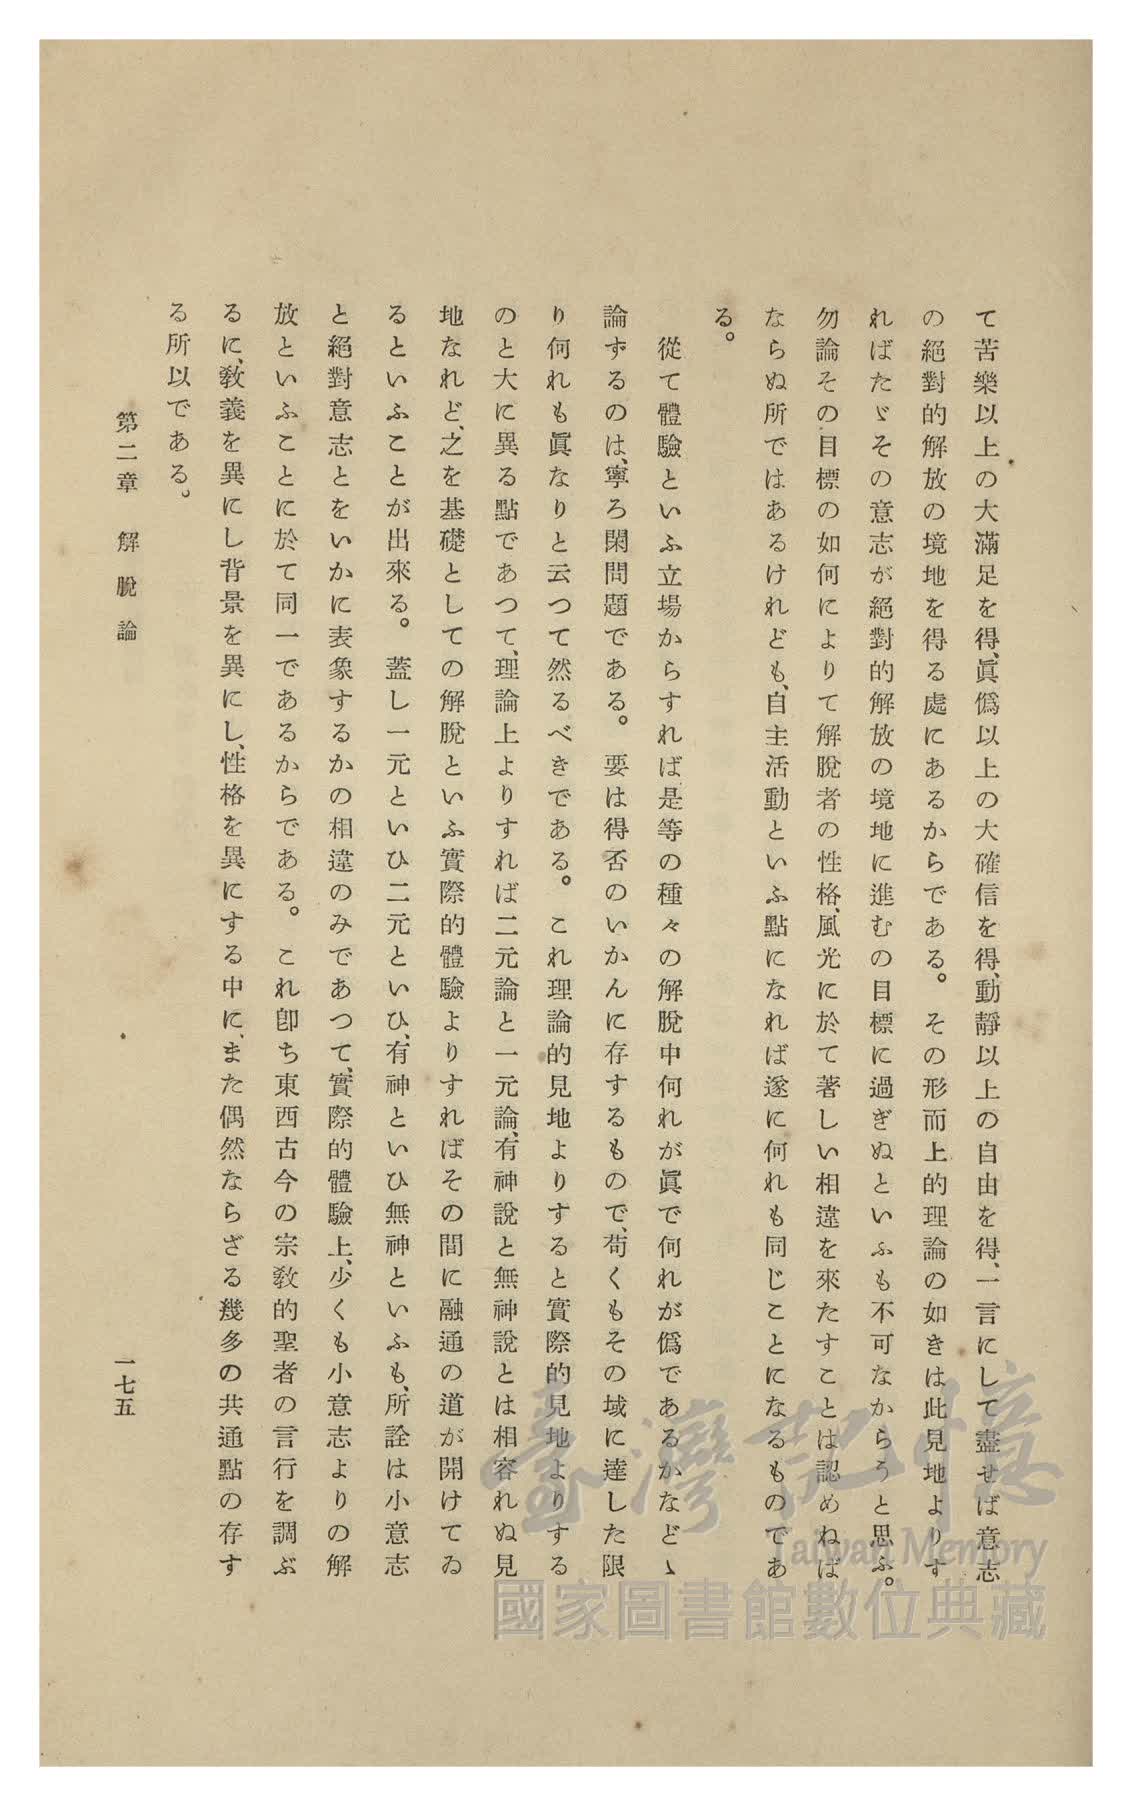 て苦樂以上の大滿足を得、眞僞以上の大確信を得、動靜以上の自由を得、一言にして盡せば意志
の絕對的解放の境地を得る處にあるからである。その形而上的理論の如きは此見地よりす
ればたゞその意志が絕對的解放の境地に進むの目標に過ぎぬといふも不可なからうと思ふ。
勿論その目標の如何によりて解脫者の性格、風光に於て著しい相違を來たすことは認めねば
ならぬ所ではあるけれども、自主活動といふ點になれば遂に何れも同じことになるものであ
る。
從て體驗といふ立場からすれば是等の種々の解脫中何れが眞で何れが僞であるかなどゝ
論ずるのは、寧ろ閑問題である。要は得否のいかんに存するもので、苟くもその域に達した限
り何れも眞なりと云つて然るべきである。これ理論的見地よりすると實際的見地よりする
のと大に異る點であつて、理論上よりすれば二元論と一元論、有神說と無神說とは相容れぬ見
地なれど、之を基礎としての解脫といふ實際的體驗よりすればその間に融通の道が開けてゐ
るといふことが出來る。蓋し一元といひ二元といひ、有神といひ無神といふも、所詮は小意志
と絕對意志とをいかに表象するかの相違のみであつて、實際的體驗上、少くも小意志よりの解
放といふことに於て同一であるからである。これ卽ち東西古今の宗敎的聖者の言行を調ぶ
るに、敎義を異にし背景を異にし、性格を異にする中に、また偶然ならざる幾多の共通點の存す
る所以である。
第二章 解脫論
一七五
臺灣記憶
Taiwan Memory
國家圖書館數位典藏